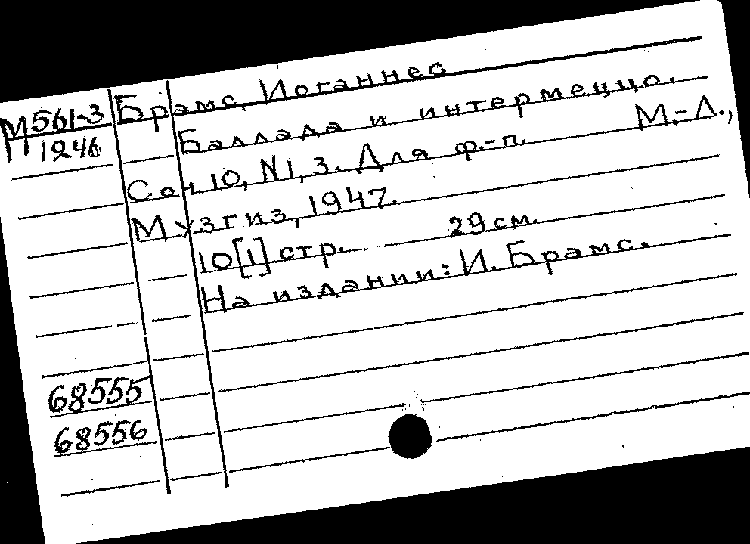 М561-3 Брамс, Иоганнес
П1246 Баллада и интермеццо.
Соч 10, N1, 3. Для ф.-п. М.-Л.,
Музгиз, 1947.
10[1] стр. 29 см.
На издании: И. Брамс.
68555
68556